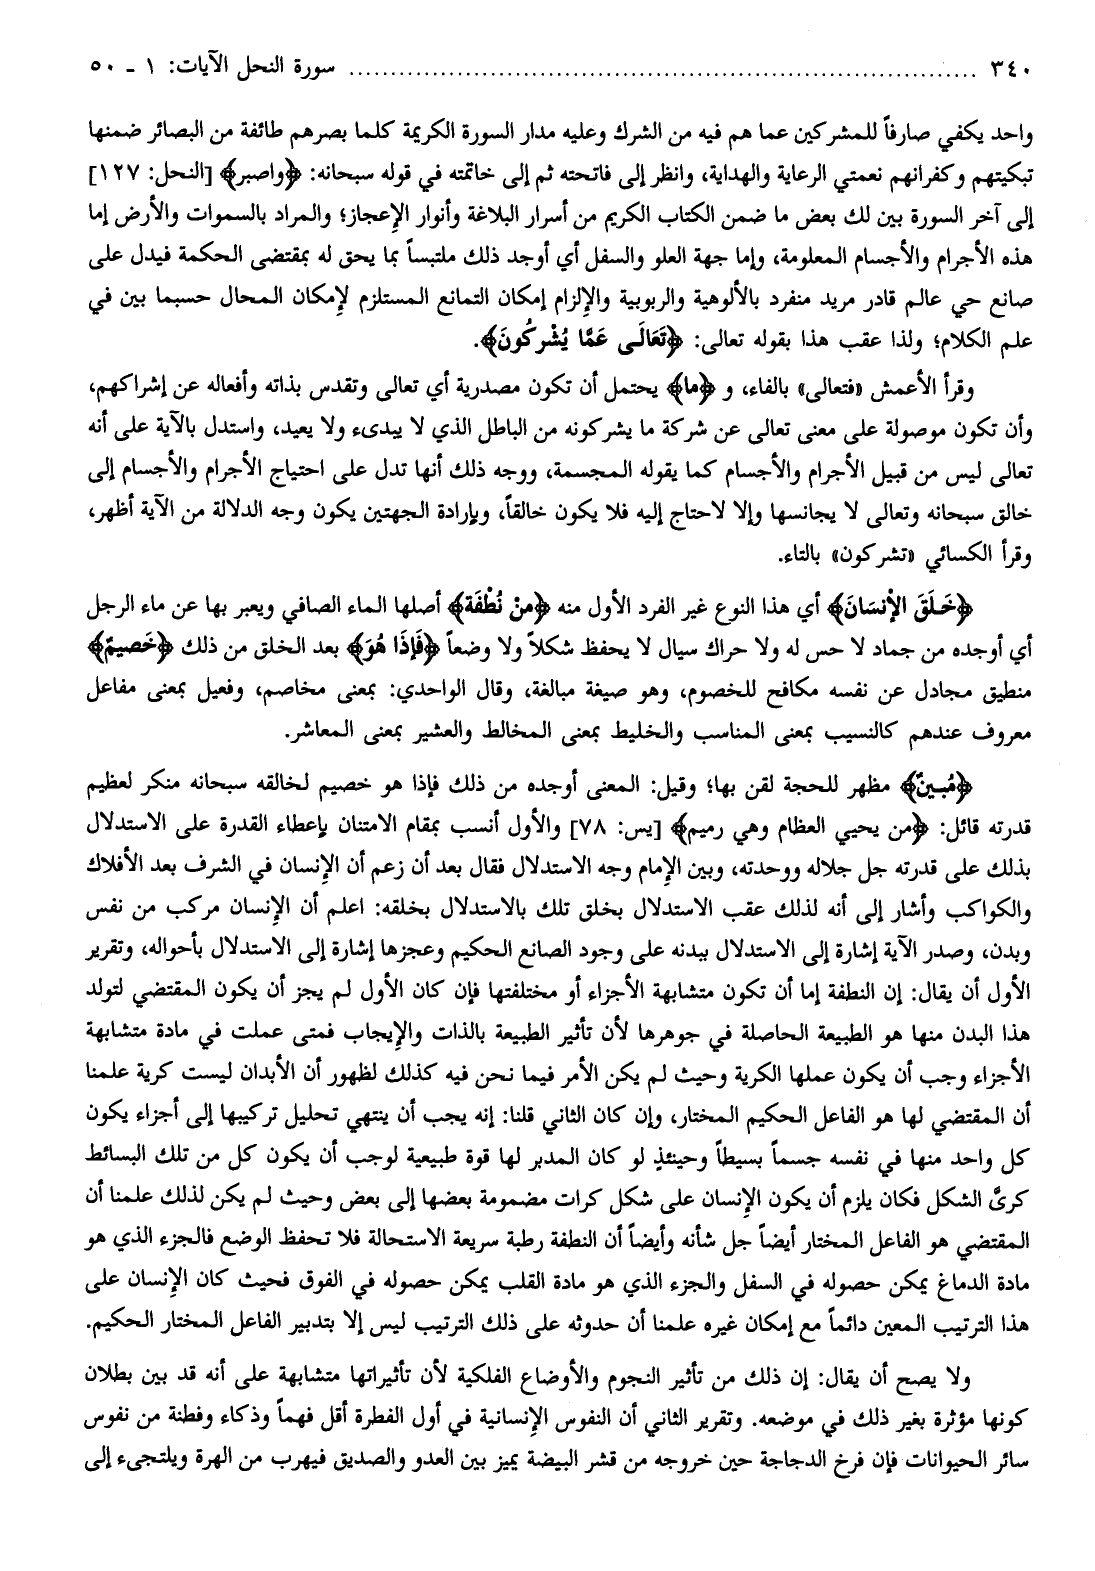 ٣٤٠ ........................................................................ سورة النحل الآيات: ١ - ٥٠
واحد يكفي صارفاً للمشركين عما هم فيه من الشرك وعليه مدار السورة الكريمة كلما بصرهم طائفة من البصائر ضمنها
تبكيتهم وكفرانهم نعمتي الرعاية والهداية، وانظر إلى فاتحته ثم إلى خاتمته في قوله سبحانه: ﴿واصبر﴾ [النحل: ١٢٧]
إلى آخر السورة بين لك بعض ما ضمن الكتاب الكريم من أسرار البلاغة وأنوار الإِعجاز؛ والمراد بالسموات والأرض إما
هذه الأجرام والأجسام المعلومة، وإما جهة العلو والسفل أي أوجد ذلك ملتبساً بما يحق له بمقتضى الحكمة فيدل على
صانع حي عالم قادر مريد منفرد بالألوهية والربوبية والإِلزام إمكان التمانع المستلزم لإِمكان المحال حسبما بين في
علم الكلام؛ ولذا عقب هذا بقوله تعالى: ﴿تَعَالَى عَمَّا يُشْركُونَ﴾.
وقرأ الأعمش «فتعالى» بالفاء، و ﴿ما﴾ يحتمل أن تكون مصدرية أي تعالى وتقدس بذاته وأفعاله عن إشراكهم،
وأن تكون موصولة على معنى تعالى عن شركة ما يشركونه من الباطل الذي لا يبدىء ولا يعيد، واستدل بالآية على أنه
تعالى ليس من قبيل الأجرام والأجسام كما يقوله المجسمة، ووجه ذلك أنها تدل على احتياج الأجرام والأجسام إلى
خالق سبحانه وتعالى لا يجانسها وإلا لاحتاج إليه فلا يكون خالقاً، وبإرادة الجهتين يكون وجه الدلالة من الآية أظهر،
وقرأ الكسائي «تشركون» بالتاء.
﴿خَلَقَ الإِنسَانَ﴾ أي هذا النوع غير الفرد الأول منه ﴿منْ نُطْفَة﴾ أصلها الماء الصافي ويعبر بها عن ماء الرجل
أي أوجده من جماد لا حس له ولا حراك سيال لا يحفظ شكلاً ولا وضعاً ﴿فَإذَا هُوَ﴾ بعد الخلق من ذلك ﴿خَصيمٌ﴾
منطيق مجادل عن نفسه مكافح للخصوم، وهو صيغة مبالغة، وقال الواحدي: بمعنى مخاصم، وفعيل بمعنى مفاعل
معروف عندهم كالنسيب بمعنى المناسب والخليط بمعنى المخالط والعشير بمعنى المعاشر.
﴿مُبينٌ﴾ مظهر للحجة لقن بها؛ وقيل: المعنى أوجده من ذلك فإذا هو خصيم لخالقه سبحانه منكر لعظيم
قدرته قائل: ﴿من يحيي العظام وهي رميم﴾ [يس: ٧٨] والأول أنسب بمقام الامتنان بإعطاء القدرة على الاستدلال
بذلك على قدرته جل جلاله ووحدته، وبين الإِمام وجه الاستدلال فقال بعد أن زعم أن الإِنسان في الشرف بعد الأفلاك
والكواكب وأشار إلى أنه لذلك عقب الاستدلال بخلق تلك بالاستدلال بخلقه: اعلم أن الإِنسان مركب من نفس
وبدن، وصدر الآية إشارة إلى الاستدلال ببدنه على وجود الصانع الحكيم وعجزها إشارة إلى الاستدلال بأحواله، وتقرير
الأول أن يقال: إن النطفة إما أن تكون متشابهة الأجزاء أو مختلفتها فإن كان الأول لم يجز أن يكون المقتضي لتولد
هذا البدن منها هو الطبيعة الحاصلة في جوهرها لأن تأثير الطبيعة بالذات والإِيجاب فمتى عملت في مادة متشابهة
الأجزاء وجب أن يكون عملها الكرية وحيث لم يكن الأمر فيما نحن فيه كذلك لظهور أن الأبدان ليست كرية علمنا
أن المقتضي لها هو الفاعل الحكيم المختار، وإن كان الثاني قلنا: إنه يجب أن ينتهي تحليل تركيبها إلى أجزاء يكون
كل واحد منها في نفسه جسماً بسيطاً وحينئذٍ لو كان المدبر لها قوة طبيعية لوجب أن يكون كل من تلك البسائط
كرىَّ الشكل فكان يلزم أن يكون الإِنسان على شكل كرات مضمومة بعضها إلى بعض وحيث لم يكن لذلك علمنا أن
المقتضي هو الفاعل المختار أيضاً جل شأنه وأيضاً أن النطفة رطبة سريعة الاستحالة فلا تحفظ الوضع فالجزء الذي هو
مادة الدماغ يمكن حصوله في السفل والجزء الذي هو مادة القلب يمكن حصوله في الفوق فحيث كان الإِنسان على
هذا الترتيب المعين دائماً مع إمكان غيره علمنا أن حدوثه على ذلك الترتيب ليس إلا بتدبير الفاعل المختار الحكيم.
ولا يصح أن يقال: إن ذلك من تأثير النجوم والأوضاع الفلكية لأن تأثيراتها متشابهة على أنه قد بين بطلان
كونها مؤثرة بغير ذلك في موضعه. وتقرير الثاني أن النفوس الإِنسانية في أول الفطرة أقل فهماً وذكاء وفطنة من نفوس
سائر الحيوانات فإن فرخ الدجاجة حين خروجه من قشر البيضة يميز بين العدو والصديق فيهرب من الهرة ويلتجىء إلى